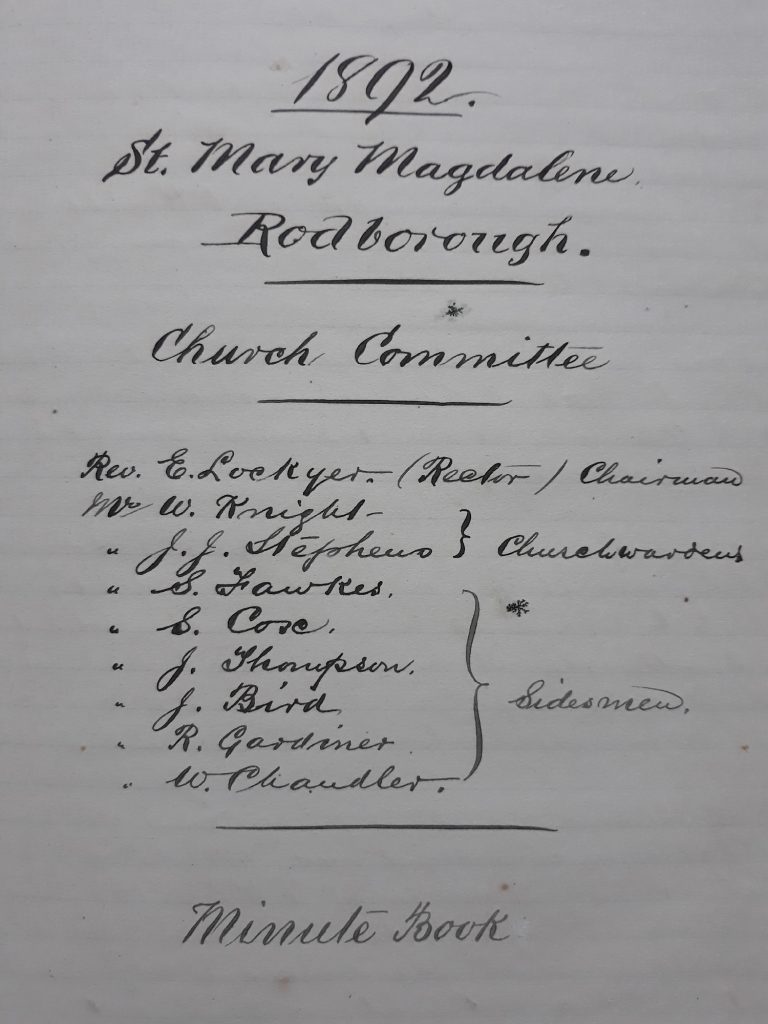 1892.
St. Mary Magdalene.
Rodborough.
Church Committee
Rev. E. Lockyer. (Rector) Chairman
Mr W. Knight
" J. J. Stephens } Churchwardens
" S. Fawkes.
" S. Cox.
" J. Thompson.
" J. Bird } Sidesmen.
" R. Gardiner
" W. Chandler.
Minute Book